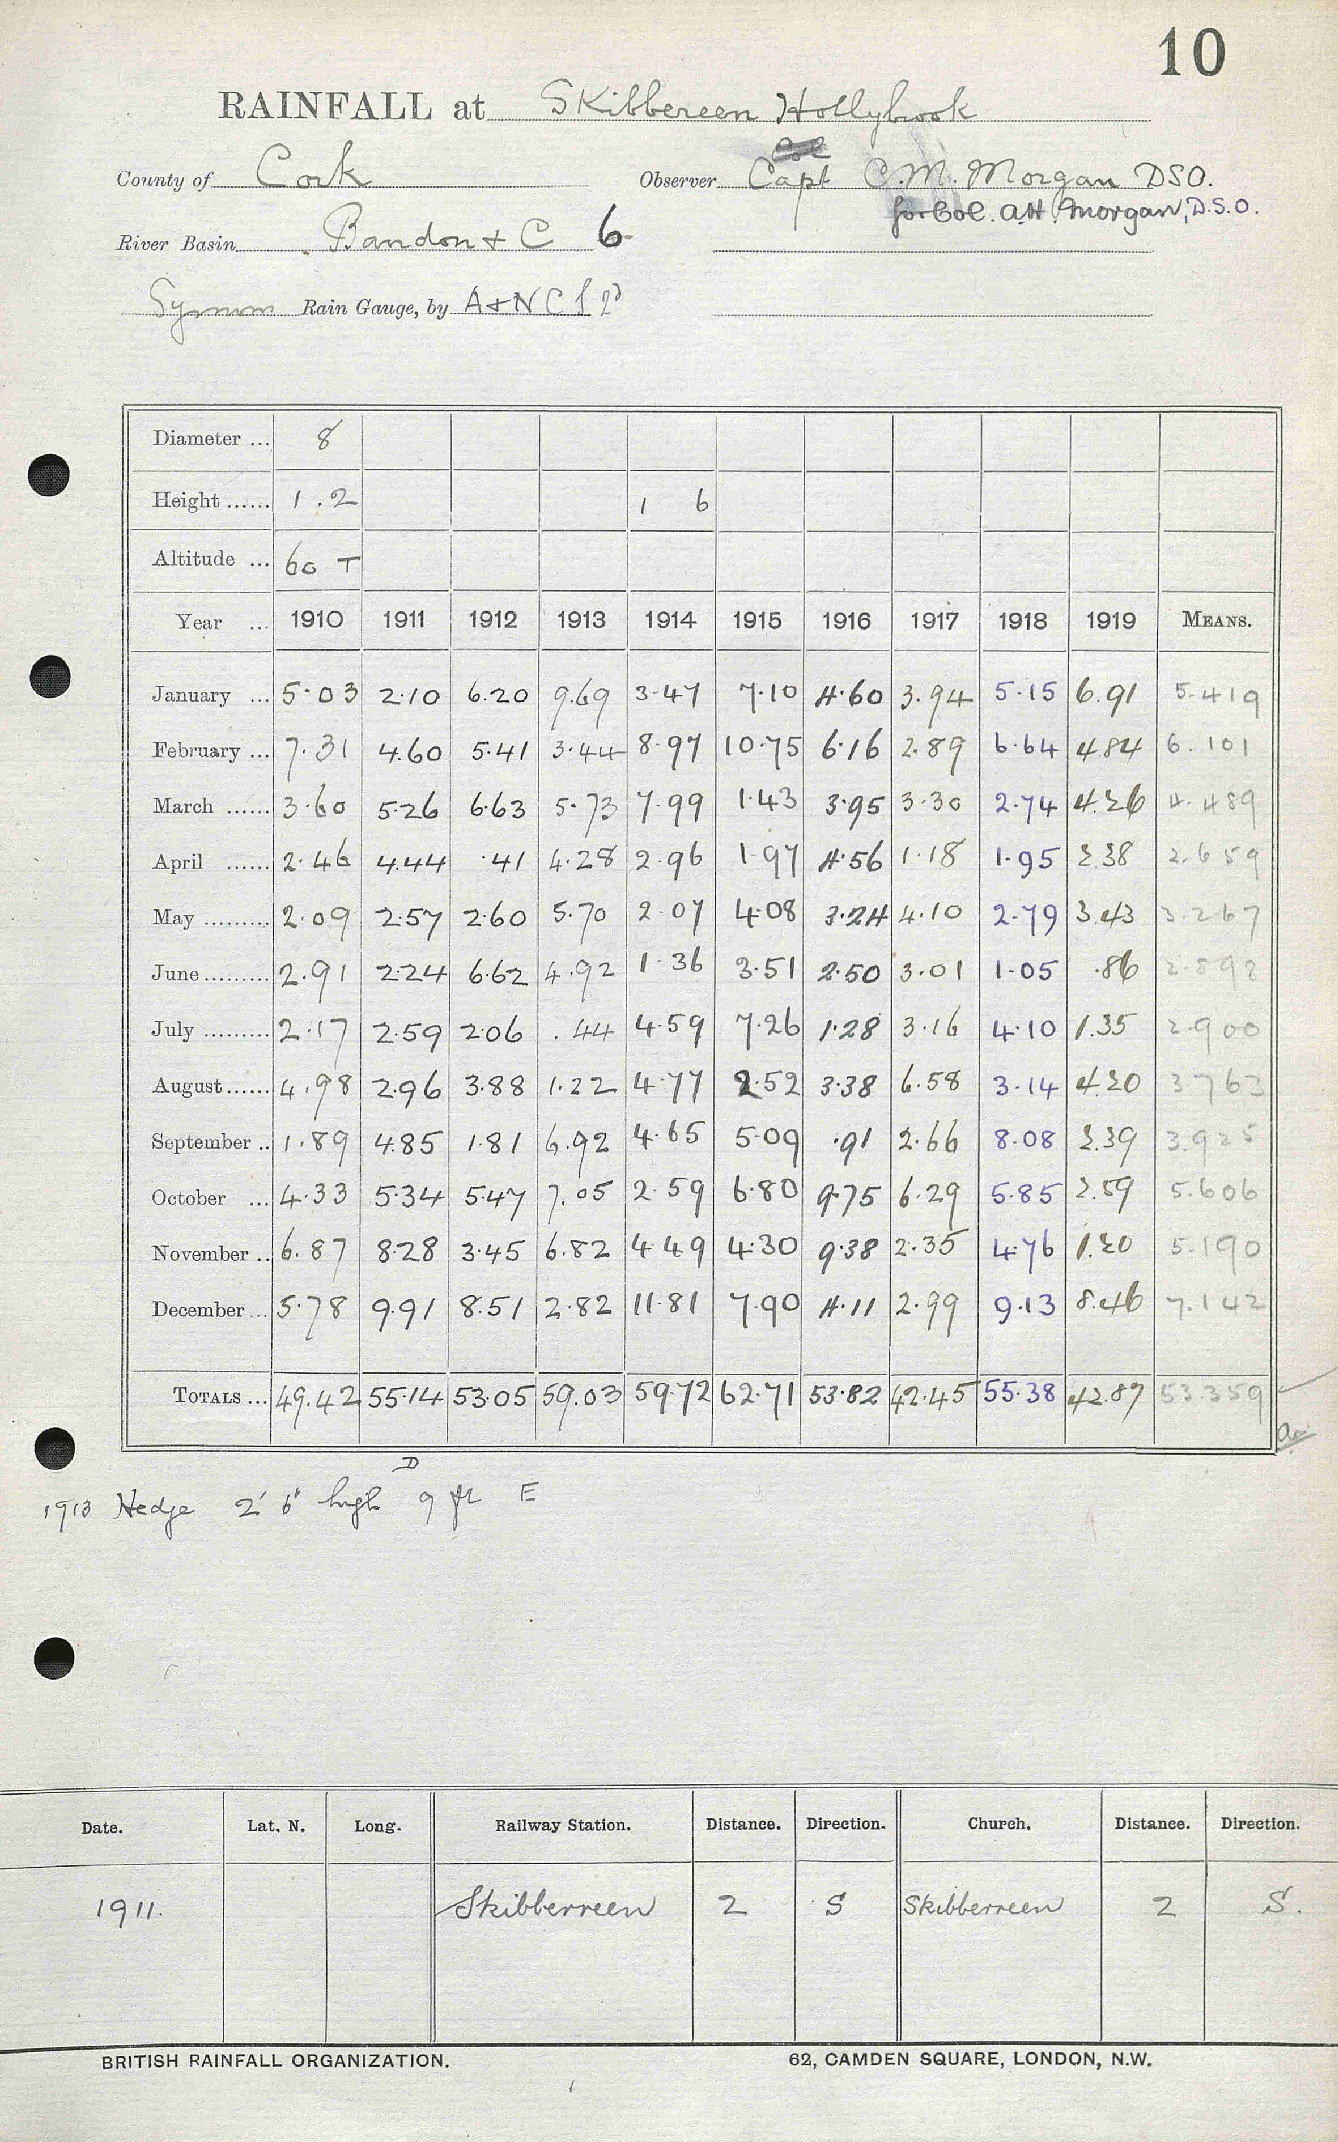 10
RAINFALL at Skibbereen Hollybrook
County of Cork Observer Capt C.M. Morgan DSO.
for Col. A.H. Morgan, D.S.O.
River Basin Bandon + C 6
Symon Rain Gauge, by A+NCS
Diameter ... 8
Height ...... 1.2 1 6
Altitude ... 60 T
Year ... 1910 1911 1912 1913 1914 1915 1916 1917 1918 1919 MEANS.
January ... 5.03 2.10 6.20 9.69 3.47 7.10 4.60 3.94 5.15 6.91 5.419
February ... 7.31 4.60 5.41 3.44 8.97 10.75 6.16 2.89 6.64 4.84 6.101
March ...... 3.60 5.26 6.63 5.73 7.99 1.43 3.95 3.30 2.74 4.26 4.489
April ...... 2.46 4.44 .41 4.28 2.96 1.97 4.56 1.18 1.95 2.38 2.659
May ......... 2.09 2.57 2.60 5.70 2.07 4.08 3.24 4.10 2.79 3.43 3.267
June ......... 2.91 2.24 6.62 4.92 1.36 3.51 2.50 3.01 1.05 .86 2.898
July ......... 2.17 2.59 2.06 .44 4.59 7.26 1.28 3.16 4.10 1.35 2.900
August ...... 4.98 2.96 3.88 1.22 4.77 2.52 3.38 6.58 3.14 4.20 3763
September .. 1.89 4.85 1.81 6.92 4.65 5.09 .91 2.66 8.08 2.39 3.925
October ... 4.33 5.34 5.47 7.05 2.59 6.80 9.75 6.29 5.85 2.59 5.606
November .. 6.87 8.28 3.45 6.82 4.49 4.30 9.38 2.35 4.76 1.20 5.190
December ... 5.78 9.91 8.51 2.82 11.81 7.90 4.11 2.99 9.13 8.46 7.142
TOTALS ... 49.42 55.14 53.05 59.03 59.72 62.71 53.82 42.45 55.38 42.87 53.359
D
1913 Hedge 2' 6" high 9 ft E
Date. Lat. N. Long. Railway Station. Distance. Direction. Church. Distance. Direction.
1911. Skibberreen 2 S Skibberreen 2 S.
BRITISH RAINFALL ORGANIZATION. 62, CAMDEN SQUARE, LONDON, N.W.